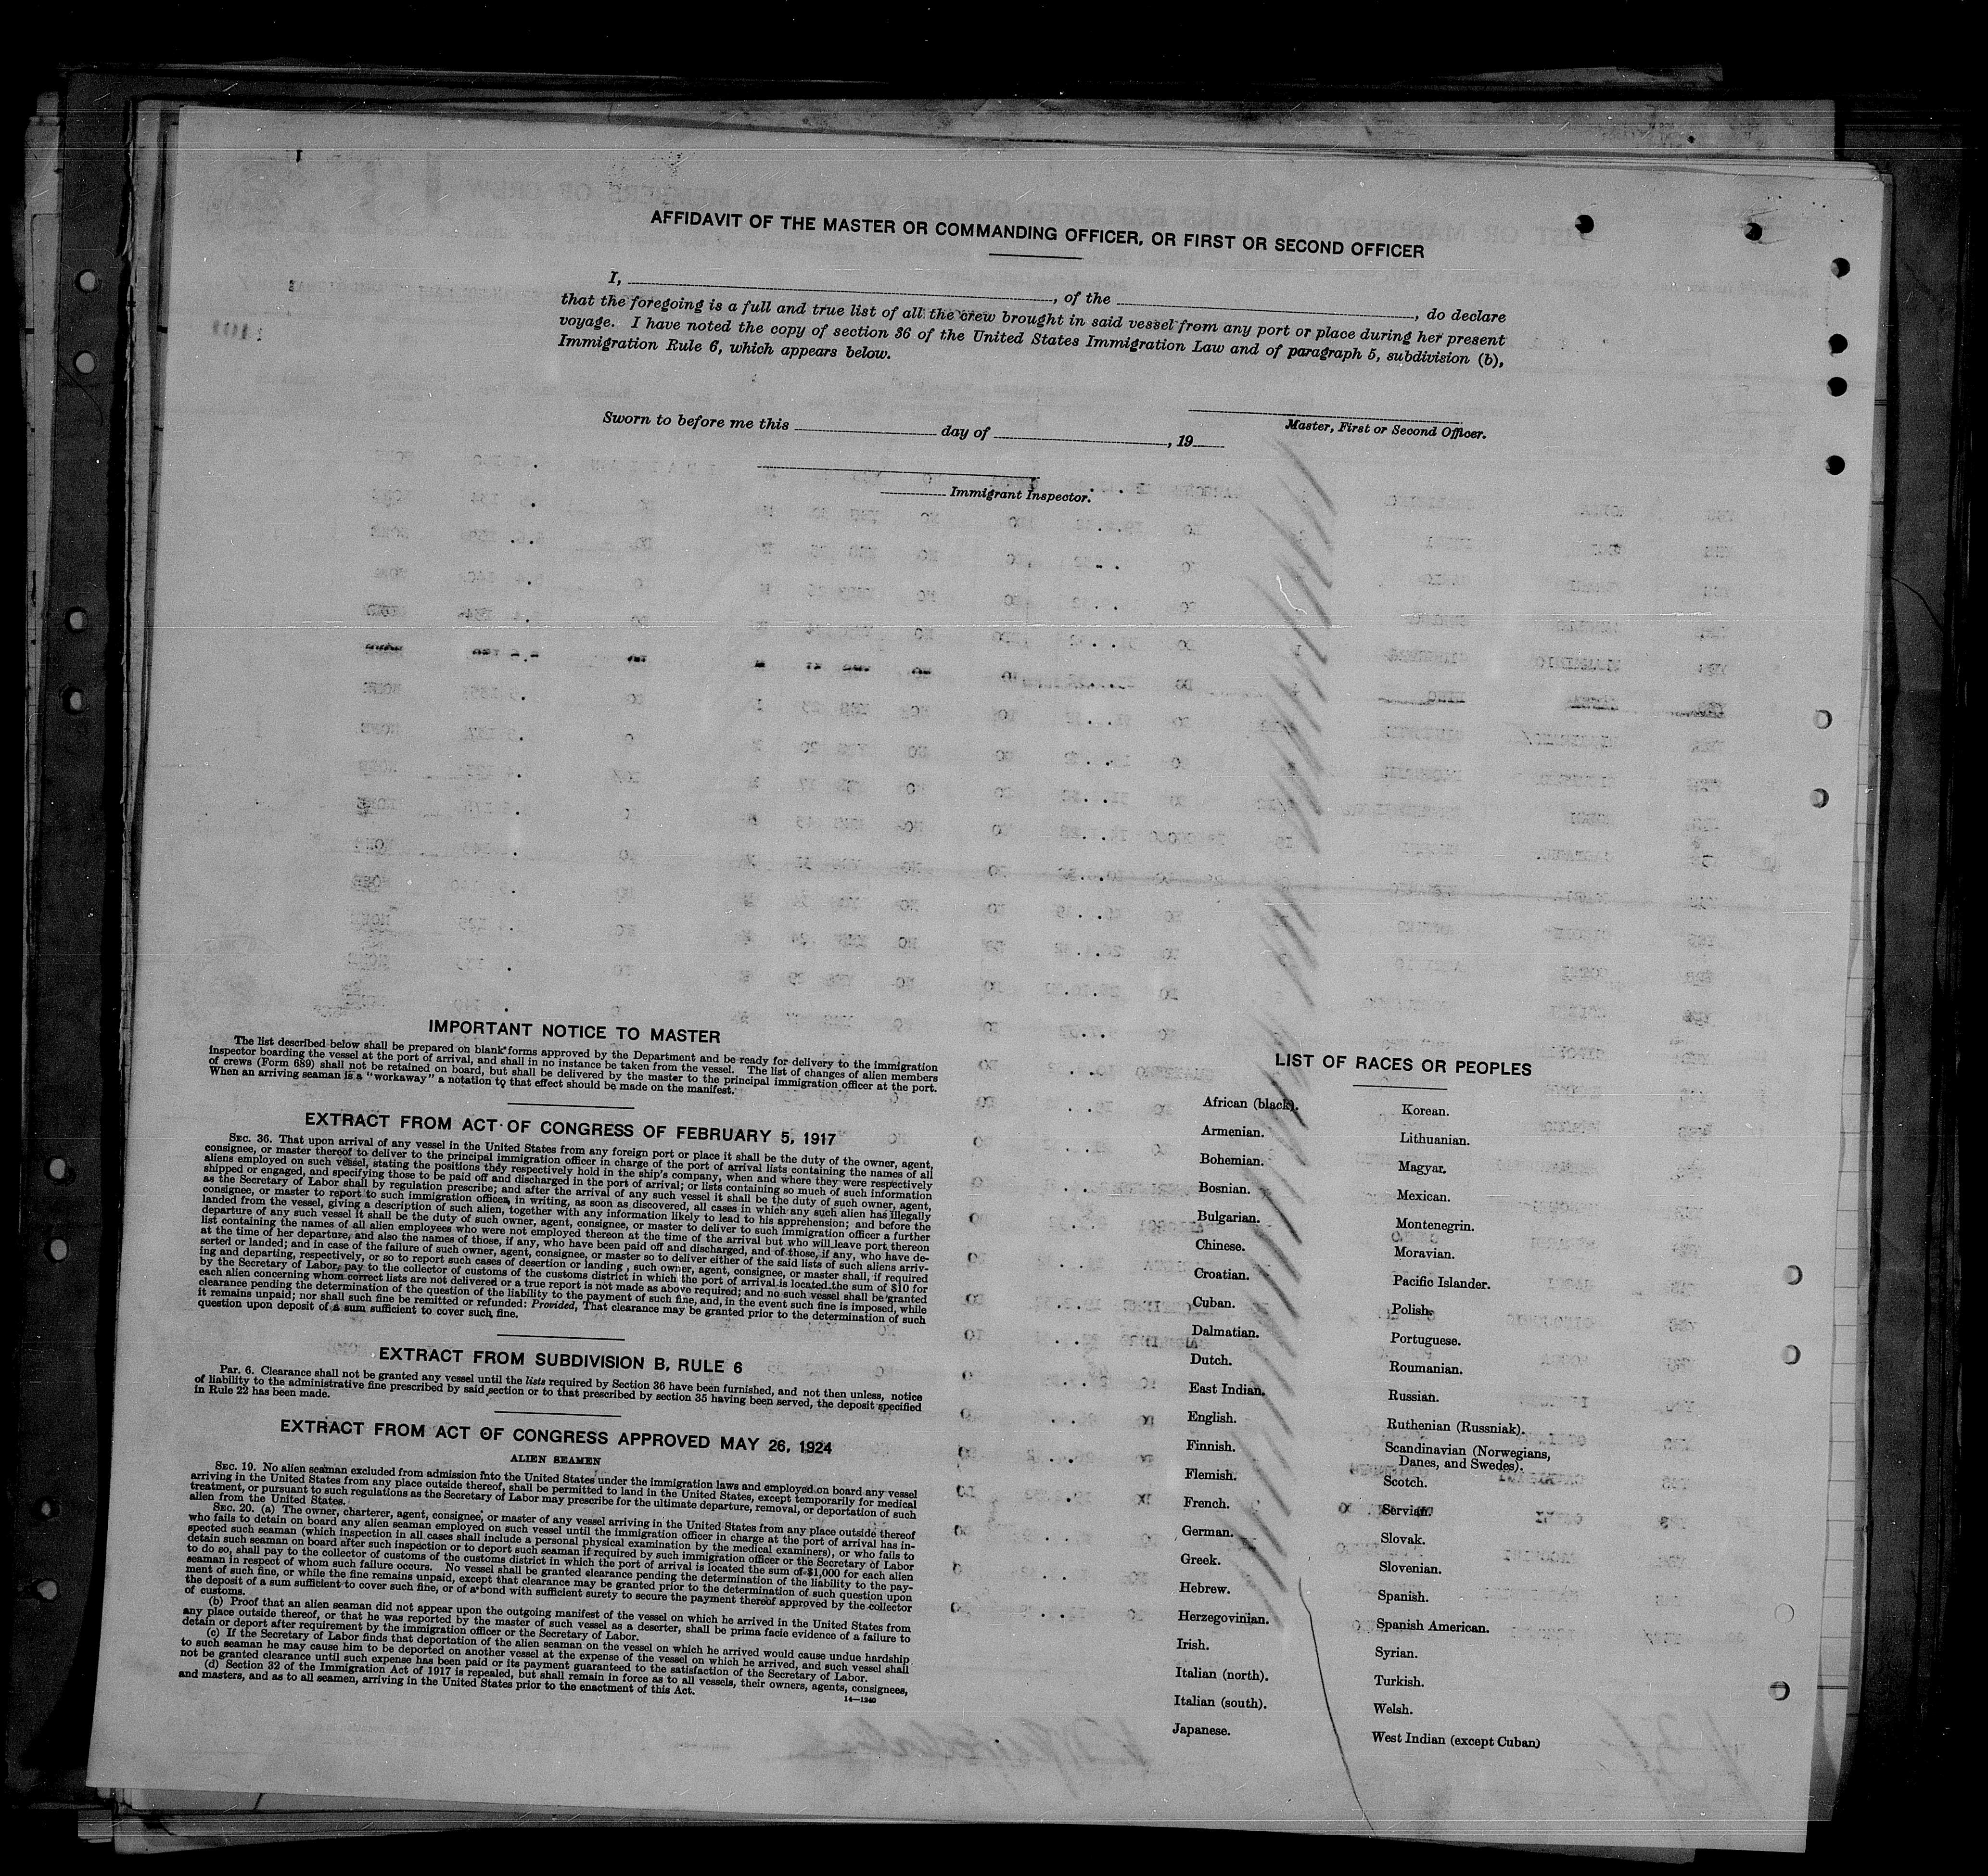 AFFIDAVIT OF THE MASTER OR COMMANDING OFFICER, OR FIRST OR SECOND OFFICER
I, , of the , do declare
that the foregoing is a full and true list of all the crew brought in said vessel from any port or place during her present
voyage. I have noted the copy of section 36 of the United States Immigration Law and of paragraph 5, subdivision (b),
Immigration Rule 6, which appears below.
Sworn to before me this day of , 19
Master, First or Second Officer.
Immigrant Inspector.
IMPORTANT NOTICE TO MASTER
The list described below shall be prepared on blank forms approved by the Department and be ready for delivery to the immigration
inspector boarding the vessel at the port of arrival, and shall in no instance be taken from the vessel. The list of changes of alien members
of crews (Form 689) shall not be retained on board, but shall be delivered by the master to the principal immigration officer at the port.
When an arriving seaman is a "workaway" a notation to that effect should be made on the manifest.
EXTRACT FROM ACT OF CONGRESS OF FEBRUARY 5, 1917
SEC. 36. That upon arrival of any vessel in the United States from any foreign port or place it shall be the duty of the owner, agent,
consignee, or master thereof to deliver to the principal immigration officer in charge of the port of arrival lists containing the names of all
aliens employed on such vessel, stating the positions they respectively hold in the ship's company, when and where they were respectively
shipped or engaged, and specifying those to be paid off and discharged in the port of arrival; or lists containing so much of such information
as the Secretary of Labor shall by regulation prescribe; and after the arrival of any such vessel it shall be the duty of such owner, agent,
consignee, or master to report to such immigration officer, in writing, as soon as discovered, all cases in which any such alien has illegally
landed from the vessel, giving a description of such alien, together with any information likely to lead to his apprehension; and before the
departure of any such vessel it shall be the duty of such owner, agent, consignee, or master to deliver to such immigration officer a further
list containing the names of all alien employees who were not employed thereon at the time of the arrival but who will leave port thereon
at the time of her departure, and also the names of those, if any, who have been paid off and discharged, and of those, if any, who have de-
serted or landed; and in case of the failure of such owner, agent, consignee, or master so to deliver either of the said lists of such aliens arriv-
ing and departing, respectively, or so to report such cases of desertion or landing , such owner, agent, consignee, or master shall, if required
by the Secretary of Labor, pay to the collector of customs of the customs district in which the port of arrival is located the sum of $10 for
each alien concerning whom correct lists are not delivered or a true report is not made as above required; and no such vessel shall be granted
clearance pending the determination of the question of the liability to the payment of such fine, and, in the event such fine is imposed, while
it remains unpaid; nor shall such fine be remitted or refunded: Provided, That clearance may be granted prior to the determination of such
question upon deposit of a sum sufficient to cover such fine.
EXTRACT FROM SUBDIVISION B, RULE 6
Par. 6. Clearance shall not be granted any vessel until the lists required by Section 36 have been furnished, and not then unless, notice
of liability to the administrative fine prescribed by said section or to that prescribed by section 35 having been served, the deposit specified
in Rule 22 has been made.
EXTRACT FROM ACT OF CONGRESS APPROVED MAY 26, 1924
ALIEN SEAMEN
SEC. 19. No alien seaman excluded from admission into the United States under the immigration laws and employed on board any vessel
arriving in the United States from any place outside thereof, shall be permitted to land in the United States, except temporarily for medical
treatment, or pursuant to such regulations as the Secretary of Labor may prescribe for the ultimate departure, removal, or deportation of such
alien from the United States.
SEC. 20. (a) The owner, charterer, agent, consignee, or master of any vessel arriving in the United States from any place outside thereof
who fails to detain on board any alien seaman employed on such vessel until the immigration officer in charge at the port of arrival has in-
spected such seaman (which inspection in all cases shall include a personal physical examination by the medical examiners), or who fails to
detain such seaman on board after such inspection or to deport such seaman if required by such immigration officer or the Secretary of Labor
to do so, shall pay to the collector of customs of the customs district in which the port of arrival is located the sum of $1,000 for each alien
seaman in respect of whom such failure occurs. No vessel shall be granted clearance pending the determination of the liability to the pay-
ment of such fine, or while the fine remains unpaid, except that clearance may be granted prior to the determination of such question upon
the deposit of a sum sufficient to cover such fine, or of a bond with sufficient surety to secure the payment thereof approved by the collector
of customs.
(b) Proof that an alien seaman did not appear upon the outgoing manifest of the vessel on which he arrived in the United States from
any place outside thereof, or that he was reported by the master of such vessel as a deserter, shall be prima facie evidence of a failure to
detain or deport after requirement by the immigration officer or the Secretary of Labor.
(c) If the Secretary of Labor finds that deportation of the alien seaman on the vessel on which he arrived would cause undue hardship
to such seaman he may cause him to be deported on another vessel at the expense of the vessel on which he arrived, and such vessel shall
not be granted clearance until such expense has been paid or its payment guaranteed to the satisfaction of the Secretary of Labor.
(d) Section 32 of the Immigration Act of 1917 is repealed, but shall remain in force as to all vessels, their owners, agents, consignees,
and masters, and as to all seamen, arriving in the United States prior to the enactment of this Act.
14—1240
LIST OF RACES OR PEOPLES
African (black).
Armenian.
Bohemian.
Bosnian.
Bulgarian.
Chinese.
Croatian.
Cuban.
Dalmatian.
Dutch.
East Indian.
English.
Finnish.
Flemish.
French.
German.
Greek.
Hebrew.
Herzegovinian.
Irish.
Italian (north).
Italian (south).
Japanese.
Korean.
Lithuanian.
Magyar.
Mexican.
Montenegrin.
Moravian.
Pacific Islander.
Polish.
Portuguese.
Roumanian.
Russian.
Ruthenian (Russniak).
Scandinavian (Norwegians,
Danes, and Swedes).
Scotch.
Servian.
Slovak.
Slovenian.
Spanish.
Spanish American.
Syrian.
Turkish.
Welsh.
West Indian (except Cuban)